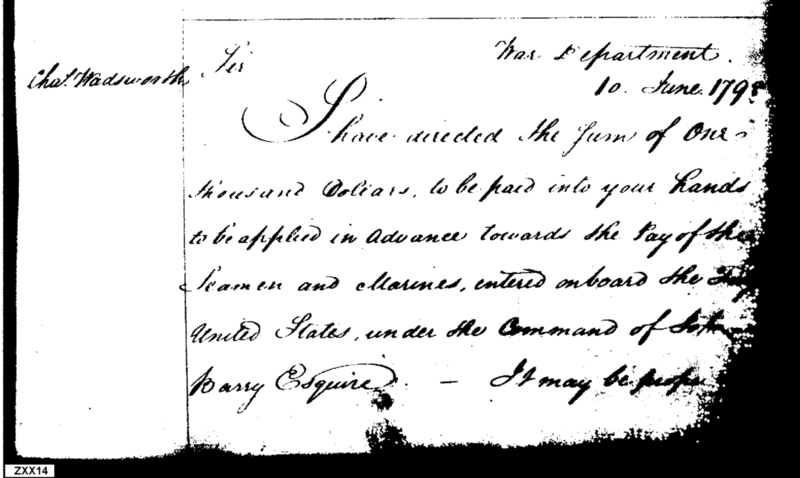 War Department.
Chas. Wadsworth Sir
10. June. 179
I have directed the Sum of One
thousand Dollars, to be paid into your hands
to be applied in Advance towards the Pay of the
Seamen and Marines, entered onboard the
United States, under the Command of
Barry Esquire. — It may be
ZXX14